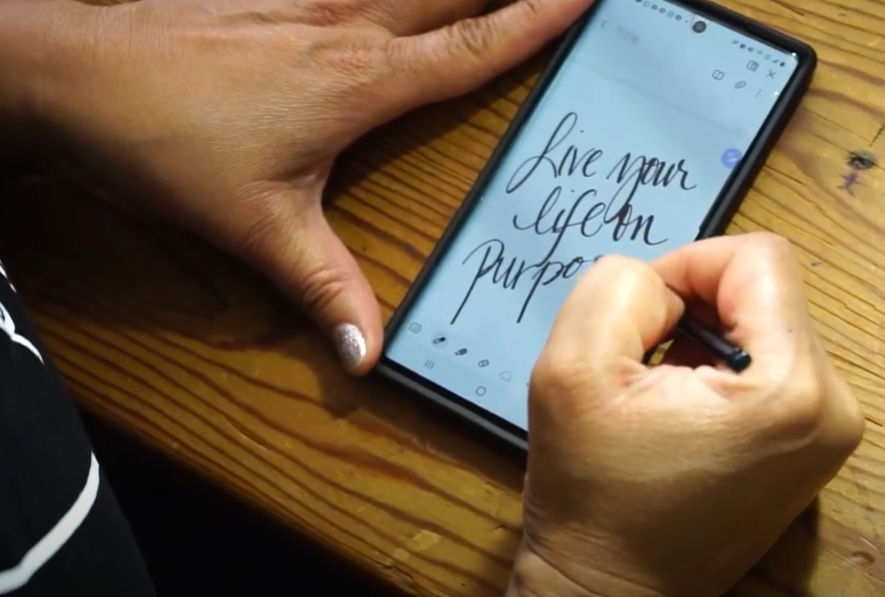 Live your
life on
Purpo